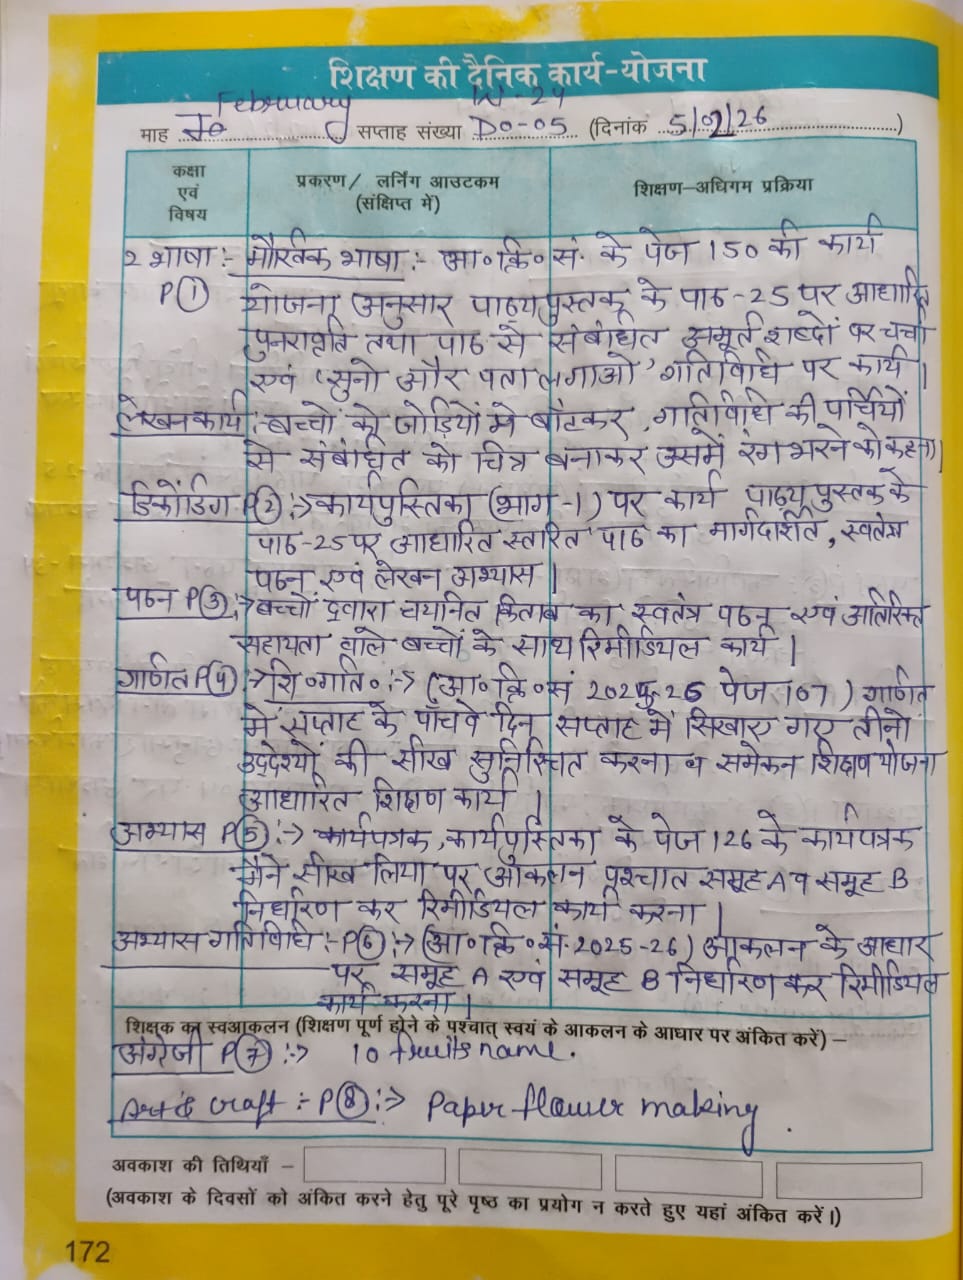 शिक्षण की दैनिक कार्य-योजना
February W-24
माह सप्ताह संख्या D0-05 (दिनांक 5/02/26)
कक्षा एवं विषय
प्रकरण/ लर्निंग आउटकम (संक्षिप्त में)
शिक्षण-अधिगम प्रक्रिया
2 भाषा:- मौखिक भाषा:- आ०क्रि०सं. के पेज 150 की कार्य
P(1) योजना अनुसार पाठ्यपुस्तक के पाठ-25 पर आधारित
पुनरावृत्ति तथा पाठ से संबंधित अमूर्त शब्दों पर चर्चा
एवं 'सुनो और पता लगाओ' गतिविधि पर कार्य।
लेखन कार्य:- बच्चों को जोड़ियों में बाँटकर, गतिविधि की पर्चियों
से संबंधित को चित्र बनाकर उसमें रंग भरने को कहना।
डिकोडिंग P(2):→ कार्यपुस्तिका (भाग-1) पर कार्य पाठ्यपुस्तक के
पाठ-25 पर आधारित स्तरित पाठ का मार्गदर्शित, स्वतंत्र
पठन एवं लेखन अभ्यास।
पठन P(3):→ बच्चों द्वारा चयनित किताब का स्वतंत्र पठन एवं अतिरिक्त
सहायता वाले बच्चों के साथ रिमीडियल कार्य।
गणित P(4):→ शि०गति०:→ (आ०क्रि०सं 2025-26 पेज 107) गणित
में सप्ताह के पाँचवे दिन सप्ताह में सिखाए गए तीनों
उद्देश्यों की सीख सुनिश्चित करना व समेकन शिक्षण योजना
आधारित शिक्षण कार्य।
अभ्यास P(5):→ कार्यपत्रक, कार्यपुस्तिका के पेज 126 के कार्यपत्रक
मैंने सीख लिया पर आंकलन पश्चात समूह A व समूह B
निर्धारण कर रिमीडियल कार्य करना।
अभ्यास गतिविधि:- P(6):→ (आ०क्रि०सं. 2025-26) आंकलन के आधार
पर समूह A एवं समूह B निर्धारण कर रिमीडियल
कार्य करना।
शिक्षक का स्वआकलन (शिक्षण पूर्ण होने के पश्चात् स्वयं के आकलन के आधार पर अंकित करें) –
अंग्रेजी P(7):→ 10 fruits name.
Art & Craft:- P(8):→ Paper flower making.
अवकाश की तिथियाँ –
(अवकाश के दिवसों को अंकित करने हेतु पूरे पृष्ठ का प्रयोग न करते हुए यहां अंकित करें।)
172